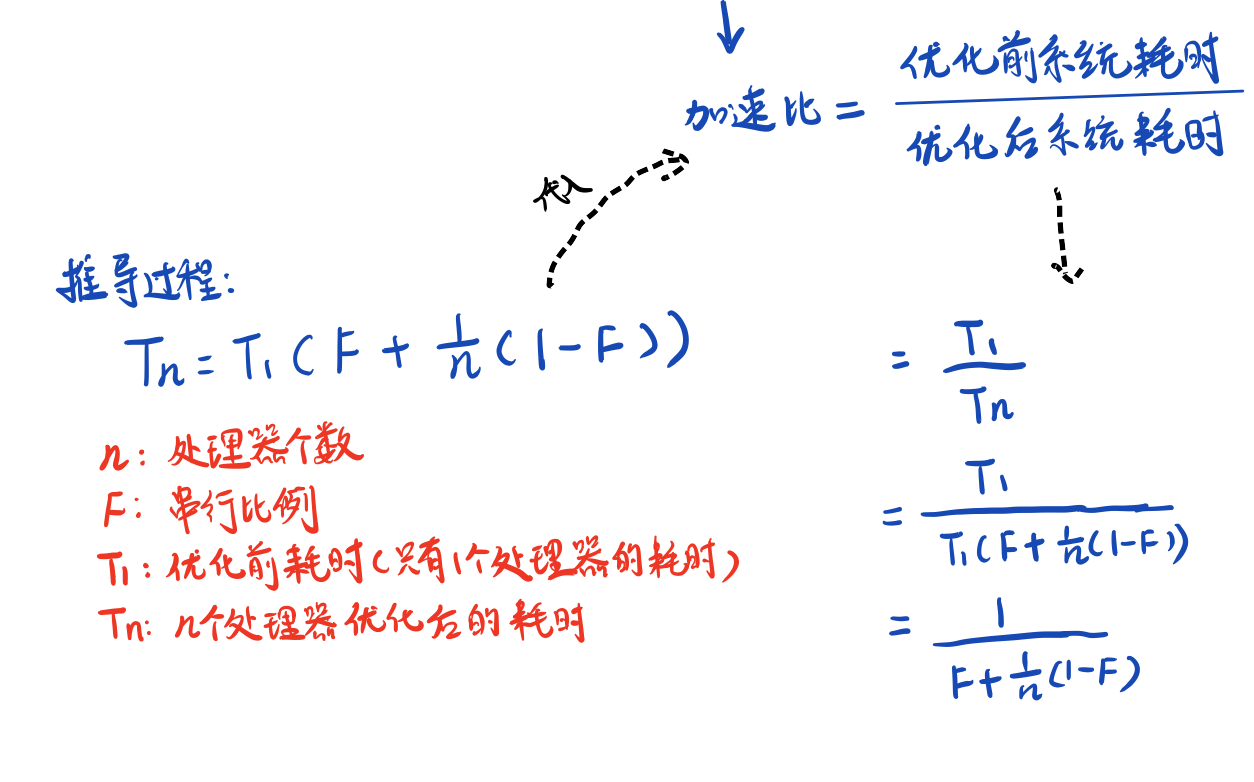 加速比 = 优化前系统耗时 / 优化后系统耗时
代入
推导过程:
Tn = T1 ( F + 1/n ( 1 - F ) )
n: 处理器个数
F: 串行比例
T1: 优化前耗时(只有1个处理器的耗时)
Tn: n个处理器优化后的耗时
= T1 / Tn
= T1 / T1 ( F + 1/n ( 1 - F ) )
= 1 / F + 1/n ( 1 - F )